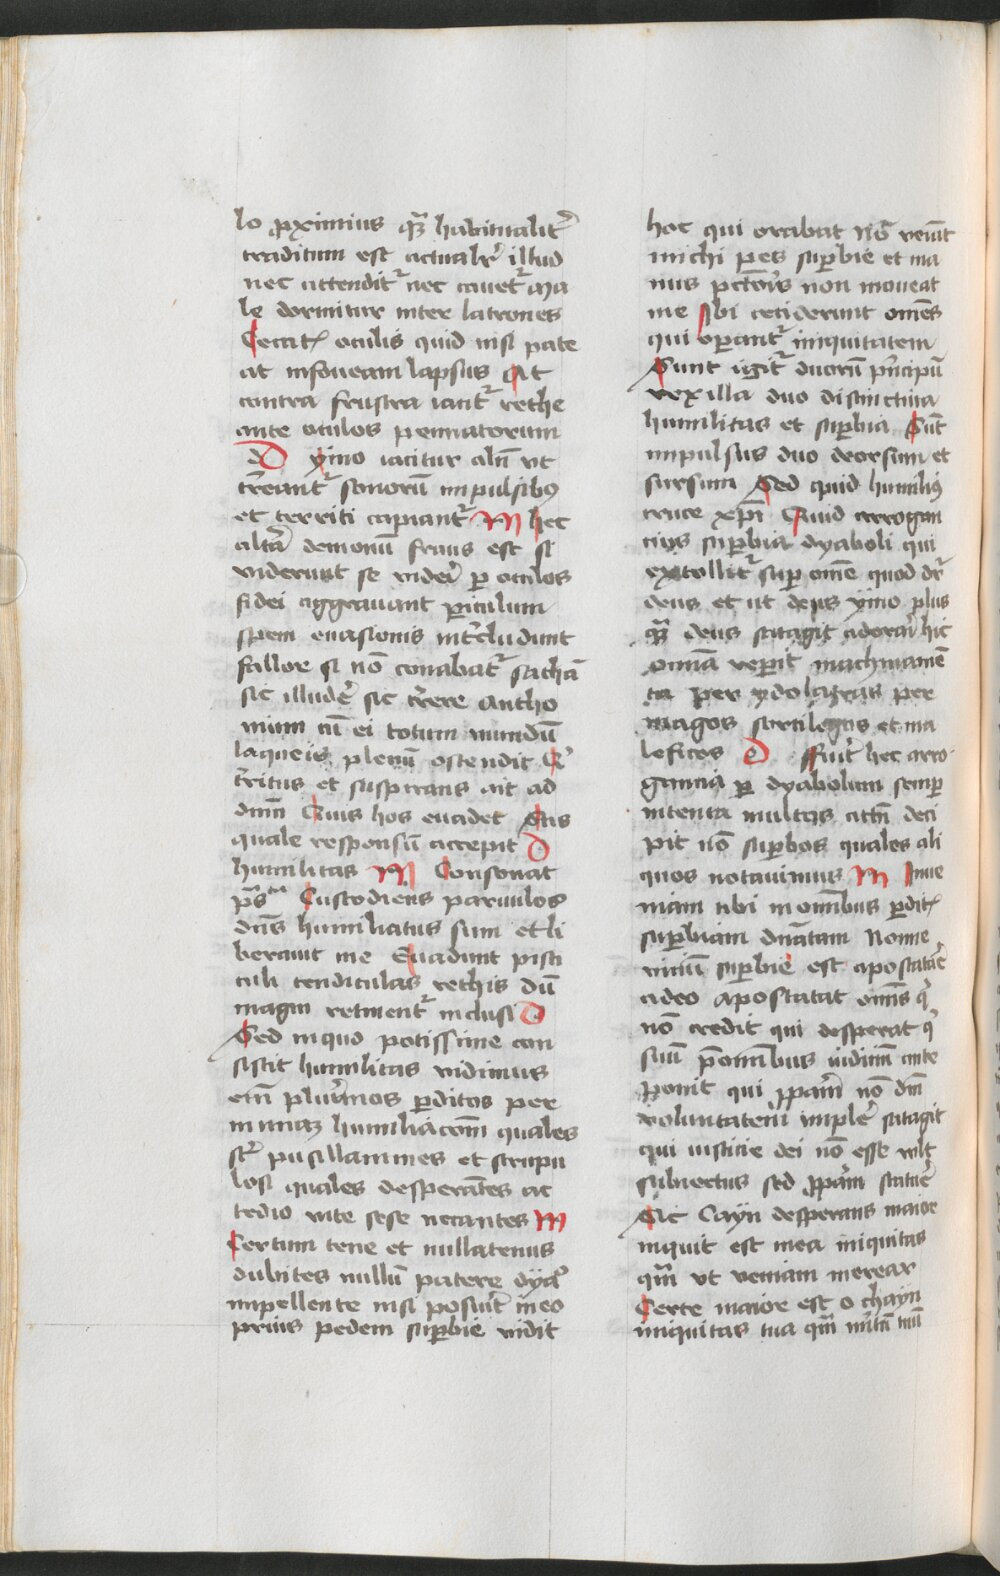 lo ꝓximius qᷓ habitualitͬ
traditum est actualit̾ illud
nec attenditᷣ nec cauetᷣ ma
le dormitur inter latrones
Cecatꝭ oculis quid nisi pate
at in foueam lapsus At
contra frustra iacitᷣ rethe
ante oculos pennatorum
D ymo iacitur aliñ vt
t̾reantᷣ sonorũ impulsibꝰ
et territi capiantᷣ M hec
alt̾a demonũ fraus est si
viderunt se videri ꝑ oculos
fidei aggrauant ꝑiculum
spem euasionis int̾cludunt
fallor si nõ conabatᷣ sathã
sic illude̾ sic t̾rere antho
nium cũ ei totum mundũ
laqueis plenũ ostendit Qͥ
t̾ritus et suspirans ait ad
dñm Quis hos euadet Scis
quale responsũ accepit D
humilitas M Consonat
pˢ̃ᵗᵃ Custodiens paruulos
dñs humiliatus sum et li
berauit me Euadunt pisci
culi tendiculas rethis dũ
magni retinentᷣ inclusi D
Sed in quo potissime con
sistit humilitas vidimus
em̃ plurĩos ꝑditos per
nimiaꝫ humiliacõem quales
sᷣt pusillanimes et scrupu
losi quales desperãtes ac
tedio vite sese necantes M
Certum tene et nullatenus
dubites nullũ patere dyaᵒ
impellente nisi posuit̾ in eo
prius pedem suꝑbie vidit
hoc qui orabat Nõ veniat
michi pes suꝑbie et ma
nus pctõris non moueat
me Ibi ceciderunt omẽs
qui oꝑantᷣ iniquitatem
Sunt igitᷣ duorũ pͥncipũ
vexilla duo distinctiua
humilitas et suꝑbia Sũt
impulsus duo deorsum et
sursum Sed quid humiliꝰ
cruce xp̃i Quid arrogan
cius suꝑbia dyaboli qui
extollitᷣ suꝑ omẽ quod dr̃
deus et ut deus ymo plus
qᷓ deus satagit adorari hic
omĩa repit machinamẽ
ta per ydolatras per
magos sortilegos et ma
leficos D ffuit̾ hec arro-
gancia ꝑ dyabolum semꝑ
intenta multos attñ deci
pit nõ suꝑbos quales ali
quos notauimus M Inue
niam tibi in omĩbus ꝑditꝭ
suꝑbiam dñatam Nonne
vicium suꝑbie est apostatare̾
adeo apostatat omĩs qͥ
nõ credit qui desperat qͥ
suũ p̃ omĩbus iudiciũ ante
ponit qui ꝓpam̃ nõ dĩ
voluntatem imple̾ satagit
qui iusticie dei nõ esse vlt
subiectus sed ꝓpam̃ statue̾
Sic Cayn desperans maior
inquit est mea iniquitas
qm̃ vt veniam merear
Certe maior est o chayn
iniquitas tua qm̃ tuũ